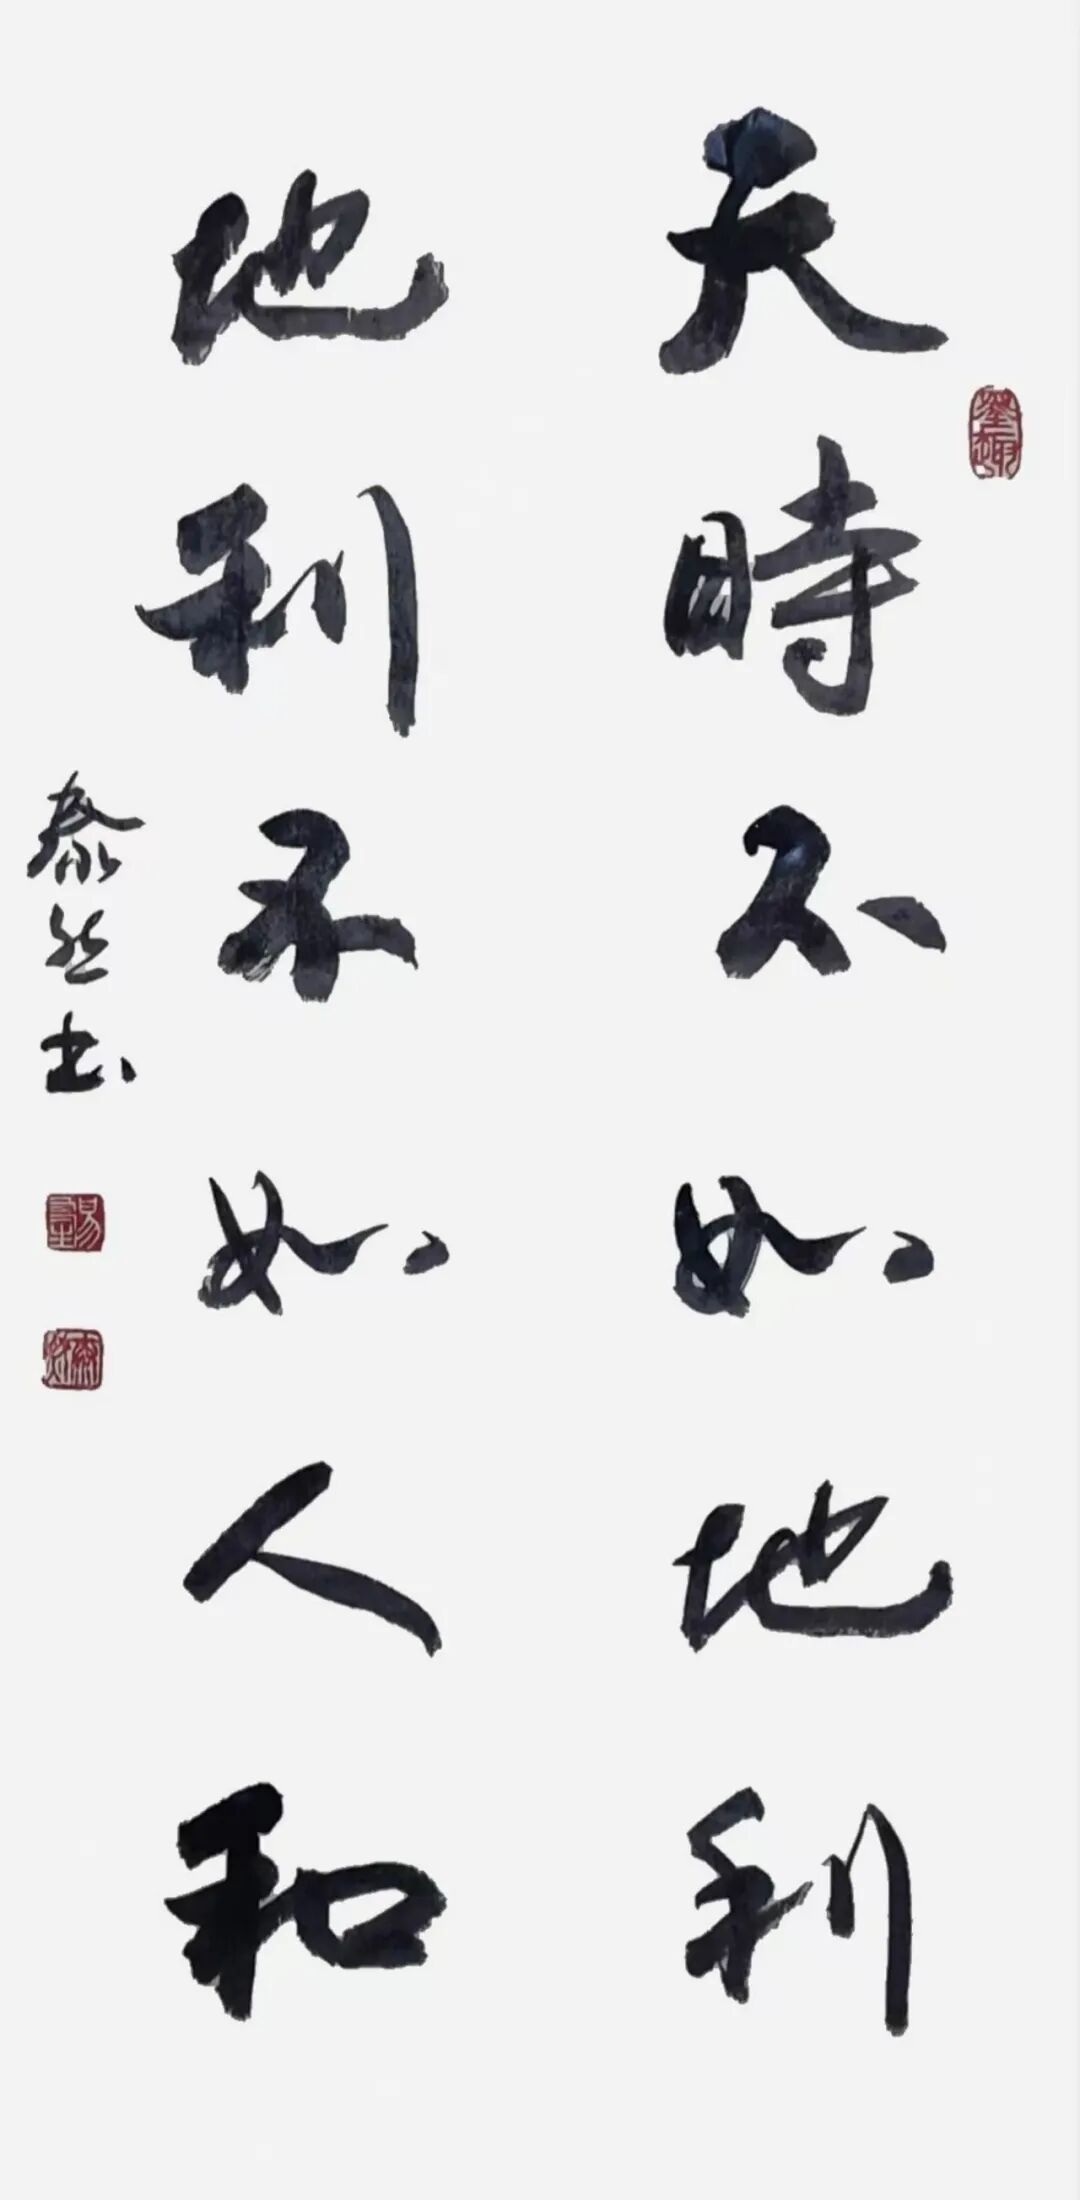 天時不如地利
地利不如人和
泰然书